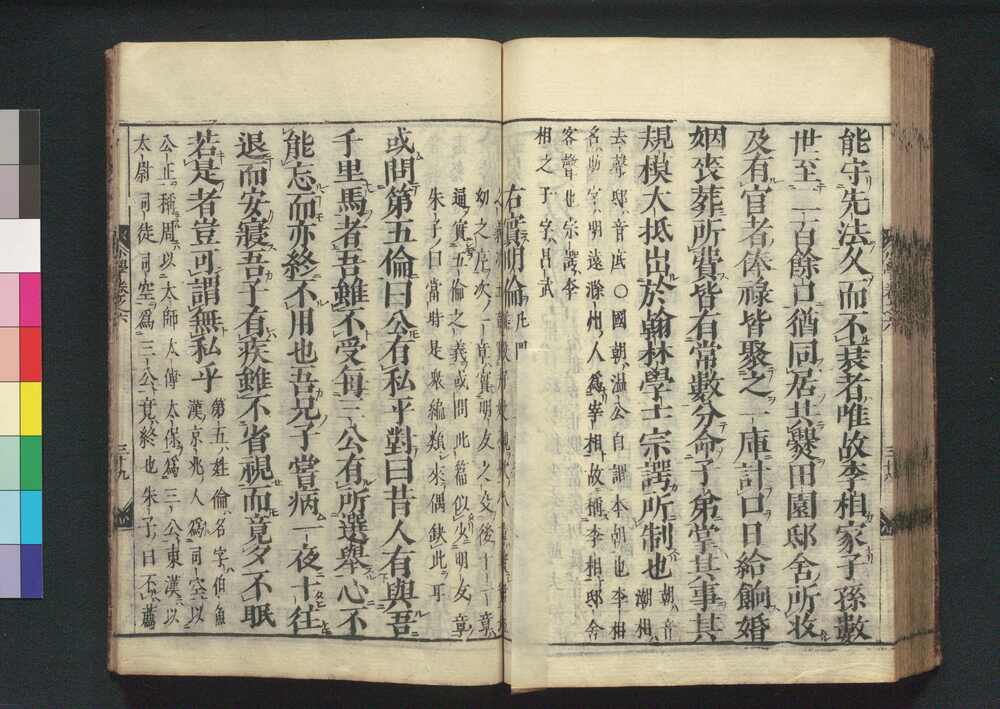 能守先法久而不衰者唯故李相家子孫數
世至二百餘口猶同居共爨田園邸舍所收
及有官者俸祿皆聚之一庫計口日給餉婚
姻喪葬所費皆有常數分命子弟掌其事其
規模大抵出於翰林學士宗諤所制也 潮州朝音
去聲邸音底○國朝溫公自謂本朝也李相
名昉字明遠滁州人爲宰相故稱李相邸舍
客舍也宗諤李
相之子字昌武
右實明倫
幼之序次二章實朋友之交後十二章
通實五倫之義或問此篇似少明友章
朱子曰當時是衆編類來偶缺此耳
或問第五倫曰公有私乎對曰昔人有與吾
千里馬者吾雖不受每三公有所選舉心不
能忘而亦終不用也吾兄子嘗病一夜十往
退而安寢吾子有疾雖不省視而竟夕不眠
若是者豈可謂無私乎 第五姓倫名字伯魚
漢京兆人爲司空以
公正稱周以太師太傅太保爲三公東漢以
太尉司徒司空爲三公竟終也朱子曰不薦
小學卷之六
三十九